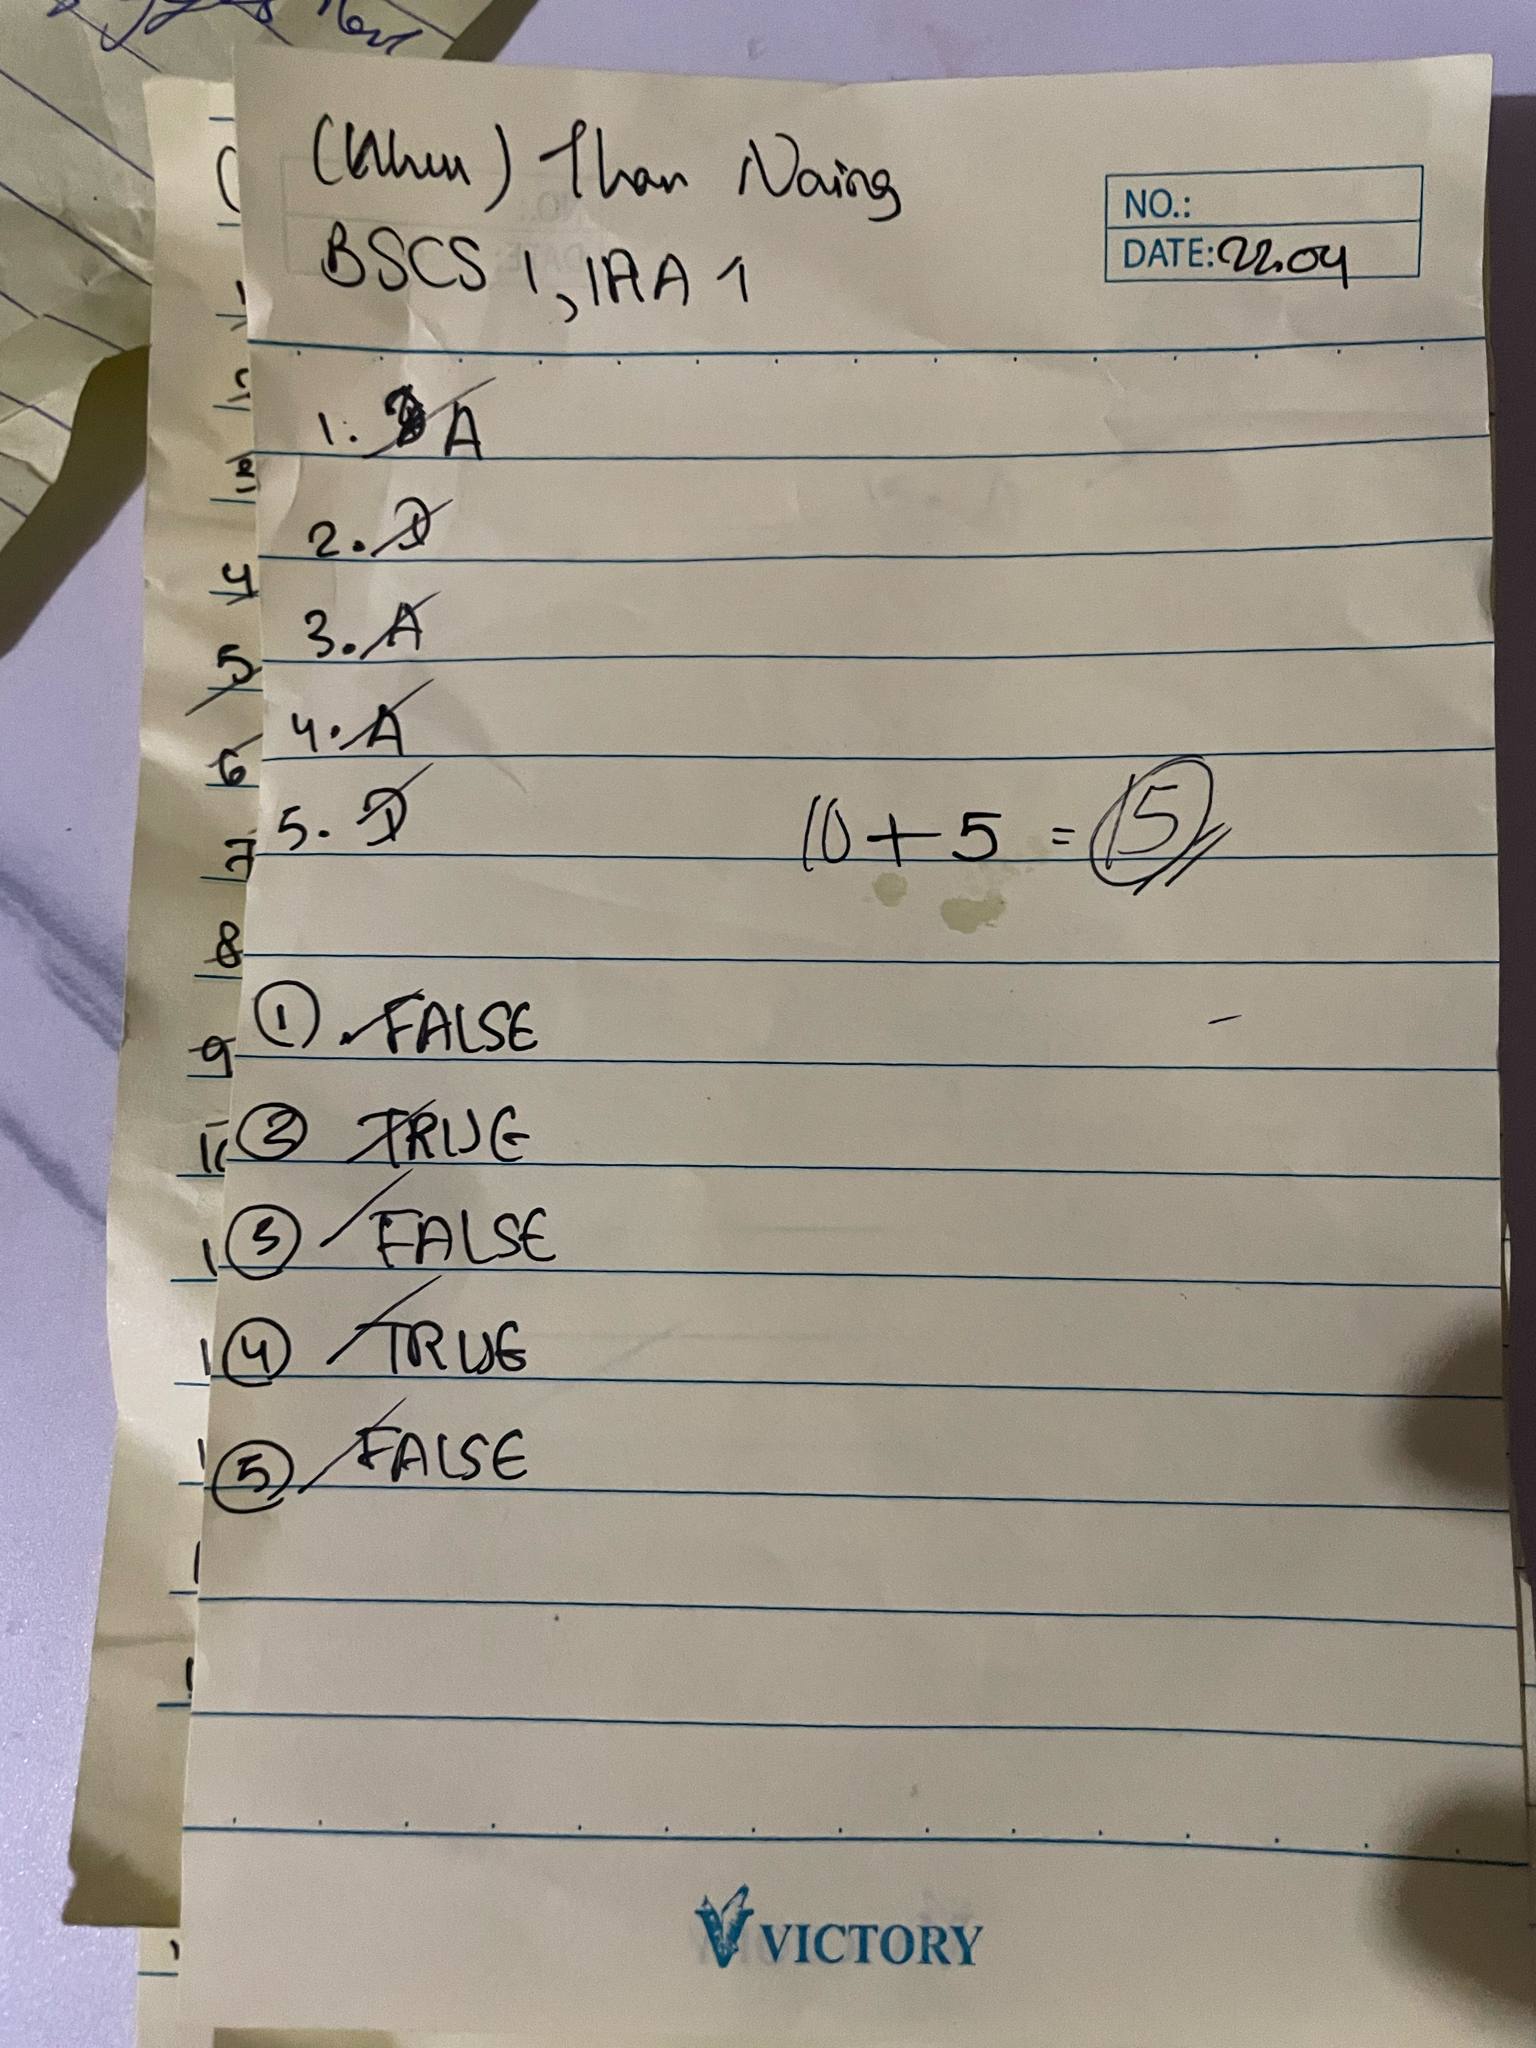 (Khun) Than Naing
BSCS 1, IAA 1
NO.:
DATE: 22.04
1. A
2. D
3. A
4. A
5. D
10 + 5 = 15
1 FALSE
2 TRUE
3 FALSE
4 TRUE
5 FALSE
4
5
6
7
8
9
VICTORY